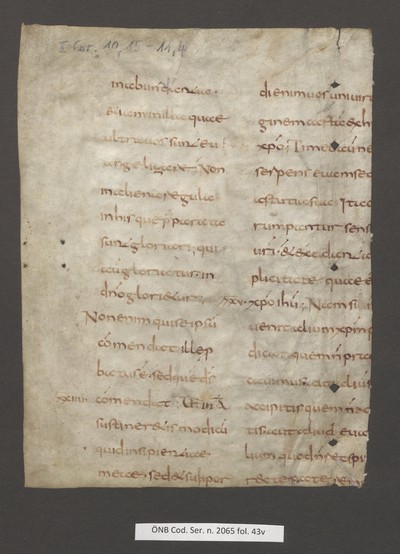 II Cor. 10,15 - 11,4
in abundantia.
etiam in illa quae
ultra vos sunt eu
angelizare. Non
in aliena regula
in his que p̄parata
sunt gloriari. qui
autē gloriatur. in
dn̄o glorietur.
Non enim qui se ipsū
cōmendat ille p
batus ē. sed quē ds̄
xxiiii comendat. Utinā
sustineretis modicū
quid insipientiae
meae. sed et subpor
di enim vos uni viro
ginem castā exh
xp̄o; Timeo autē ne
serpens evam sed
astutia sua. Ita co
rumpantur sens
uri. et excidant a
plicitate. quae e
xxv. xpo ihū; Nam si
venit alium xp̄m p
dicat quem n̄ prae
dicavimus aut aliū s
accipitis quem n̄ ac
tis. aut aliud eva
lium quod n̄
recte pateremi
ÖNB Cod. Ser. n. 2065 fol. 43v